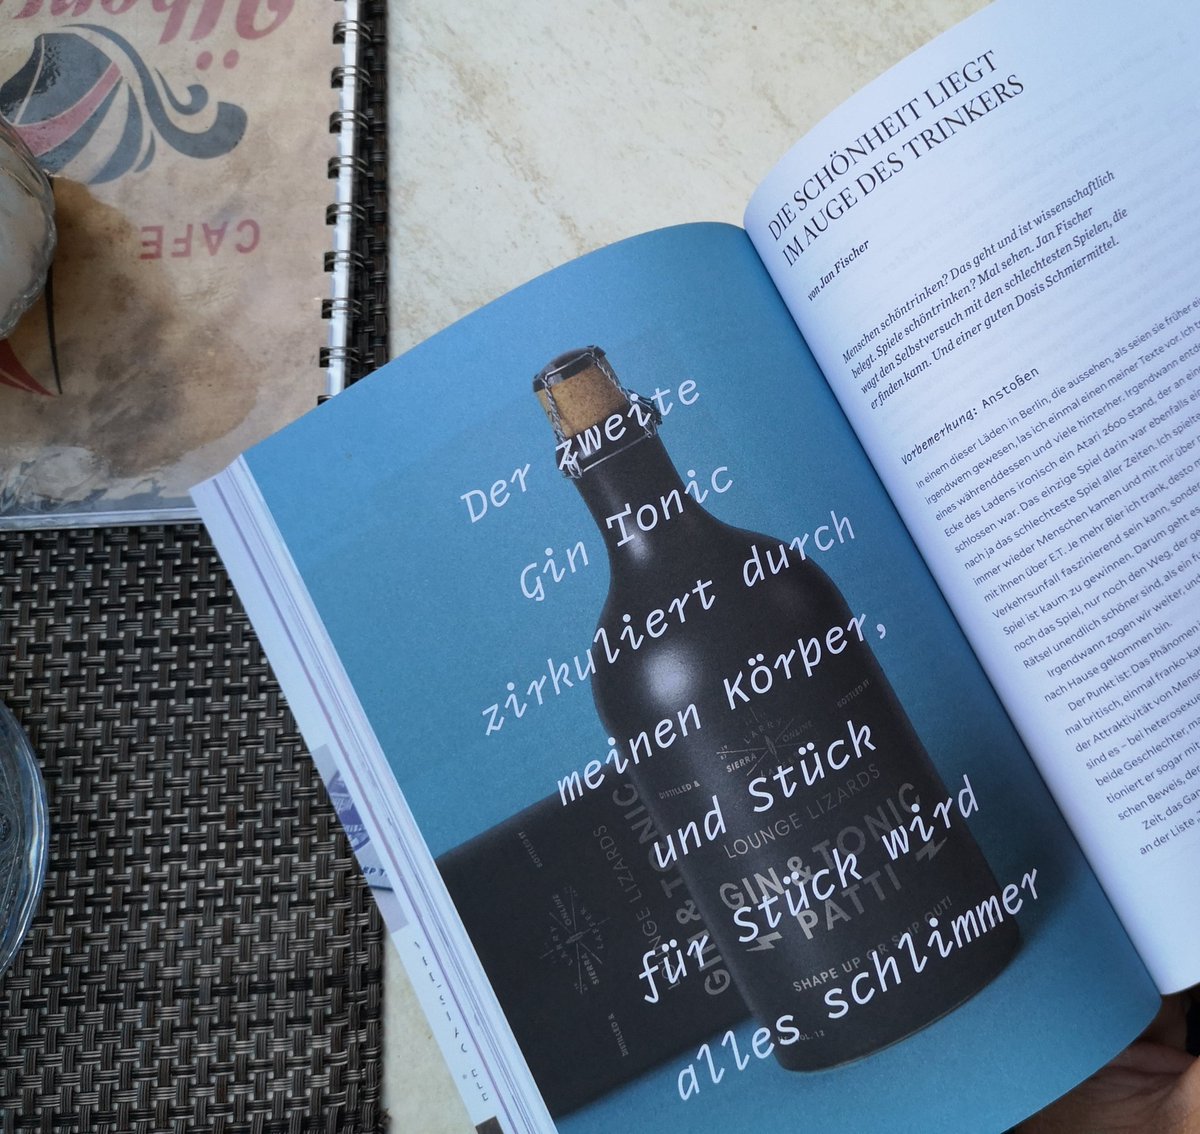 CAFE
Der zweite
Gin Tonic
zirkuliert durch
meinen Körper,
und Stück
für Stück wird
alles schlimmer
LARRY
ONLINE
SIERRA
LAFFER
BOTTLED BY
DISTILLED &
LOUNGE LIZARDS
GIN & TONIC
PATTI
SHAPE UP OR SLIP OUT!
VOL. 12
BOTTLED BY
LARRY
ONLINE
LAFFER
SIERRA
DISTILLED &
LOUNGE LIZARDS
GIN & TONIC
DIE SCHÖNHEIT LIEGT
IM AUGE DES TRINKERS
von Jan Fischer
Menschen schöntrinken? Das geht und ist wissenschaftlich
belegt. Spiele schöntrinken? Mal sehen. Jan Fischer
wagt den Selbstversuch mit den schlechtesten Spielen, die
er finden kann. Und einer guten Dosis Schmiermittel.
Vorbemerkung: Anstoßen
In einem dieser Läden in Berlin, die aussehen, als seien sie früher
irgendwem gewesen, las ich einmal einen meiner Texte vor. Ich
eines währenddessen und viele hinterher. Irgendwann
Ecke des Ladens ironisch ein Atari 2600 stand, der an
schlossen war. Das einzige Spiel darin war ebenfalls
nach ja das schlechteste Spiel aller Zeiten. Ich spielte
immer wieder Menschen kamen und mit mir über
mit ihnen über E.T. Je mehr Bier ich trank, desto
Verkehrsunfall faszinierend sein kann,
Spiel ist kaum zu gewinnen. Darum geht
noch das Spiel, nur noch den Weg, der
Rätsel unendlich schöner sind, als ein
Irgendwann zogen wir weiter,
nach Hause gekommen bin.
Der Punkt ist: Das Phänomen
mal britisch, einmal
der Attraktivität von
sind es – bei
beide Geschlechter,
tioniert er sogar
schen Beweis,
Zeit, das
an der Liste